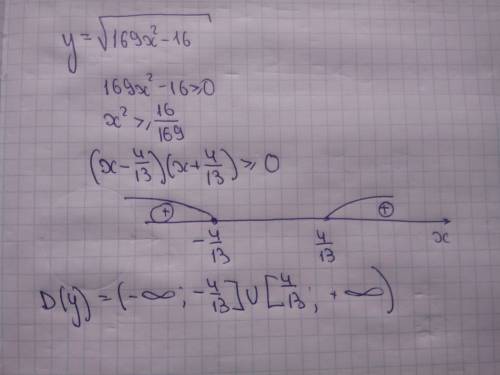 y = √(169x² - 16)
169x² - 16 ≥ 0
x² ≥ 16/169
(x - 4/13)(x + 4/13) ≥ 0
+ +
-4/13 4/13 x
D(y) = (-∞; -4/13] ∪ [4/13; +∞)